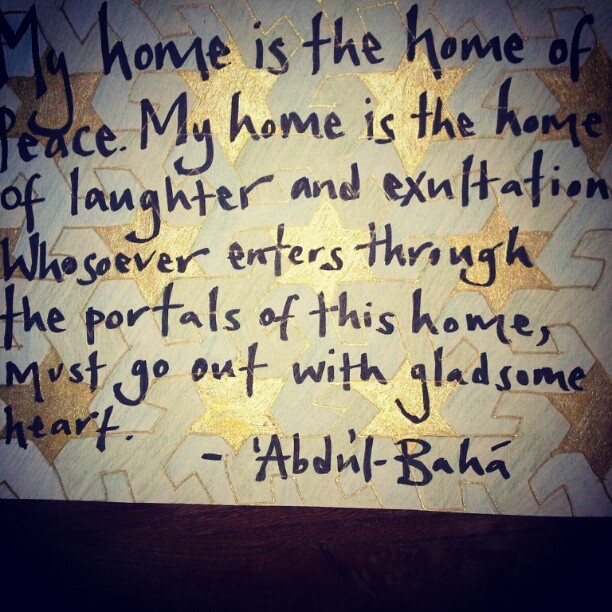 My home is the home of
Peace. My home is the home
of laughter and exultation
Whosoever enters through
the portals of this home,
Must go out with gladsome
heart.
- 'Abdu'l-Bahá